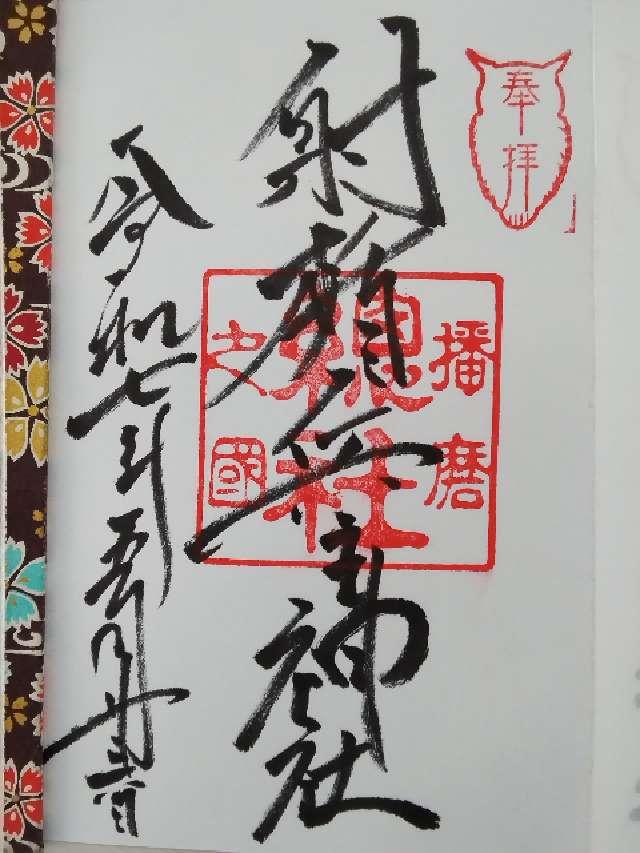 奉拝
射楯兵主神社
播磨
總社
之國
令和七年五月廿